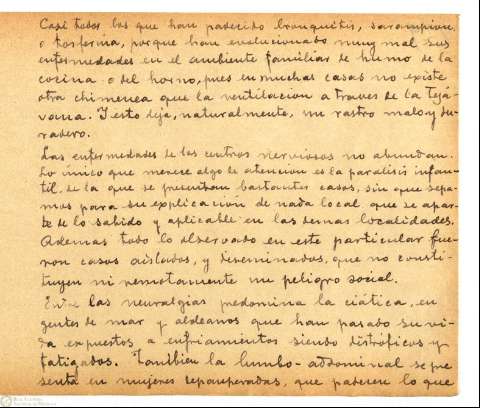 Casi todos los que han padecido bronquitis, sarampion
o tosferina, porque han evolucionado muy mal sus
enfermedades en el ambiente familiar de humo de la
cocina o del horno, pues en muchas casas no existe
otra chimenea que la ventilacion a traves de la tejá-
vana. Y esto deja, naturalmente, un rastro malo y du-
radero.
Las enfermedades de los centros nerviosos no abundan.
Lo único que merece algo de atención es la paralisis infan-
til, de la que se presentan bastantes casos, sin que sepa-
mos para su explicación de nada local que se apar-
te de lo sabido y aplicable en las demas localidades.
Ademas todo lo observado en este particular fue-
ron casos aislados, y diseminados, que no consti-
tuyen ni remotamente un peligro social.
Entre las neuralgias predomina la ciática, en
gentes de mar y aldeanos que han pasado su vi-
da expuestos a enfriamientos siendo distróficos y
fatigados. Tambien la lumbo-abdominal se pre
senta en mujeres depauperadas, que padecen lo que